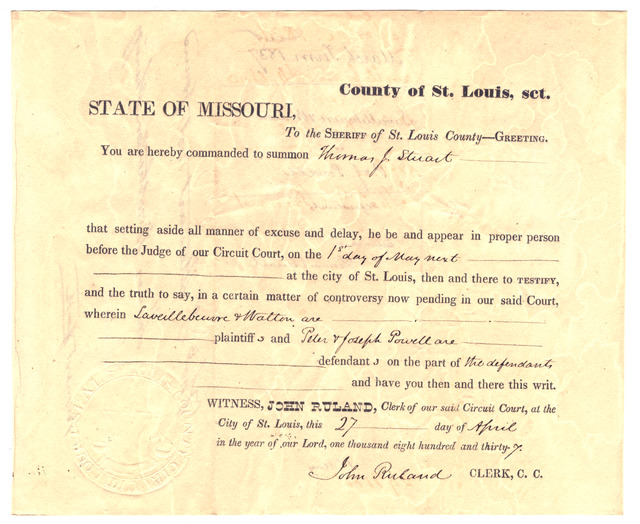 County of St. Louis, sct.
STATE OF MISSOURI,
To the SHERIFF of St. Louis County—GREETING.
You are hereby commanded to summon Thomas J. Stuart
that setting aside all manner of excuse and delay, he be and appear in proper person
before the Judge of our Circuit Court, on the 1st day of May next
at the city of St. Louis, then and there to TESTIFY,
and the truth to say, in a certain matter of controversy now pending in our said Court,
wherein Laveillebeuvre & Walton are
plaintiff s and Peter & Joseph Powell are
defendant s on the part of the defendants
and have you then and there this writ.
WITNESS, JOHN RULAND, Clerk of our said Circuit Court, at the
City of St. Louis, this 27 day of April
in the year of our Lord, one thousand eight hundred and thirty-7.
John Ruland CLERK, C. C.